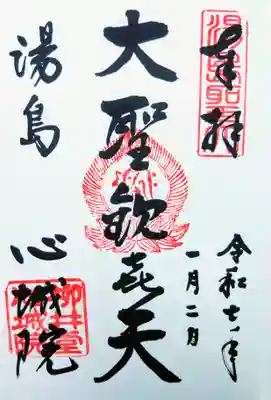 奉拝
湯島聖天
令和七年
一月二日
大聖歓喜天
湯島
心城院
柳井堂
心城院